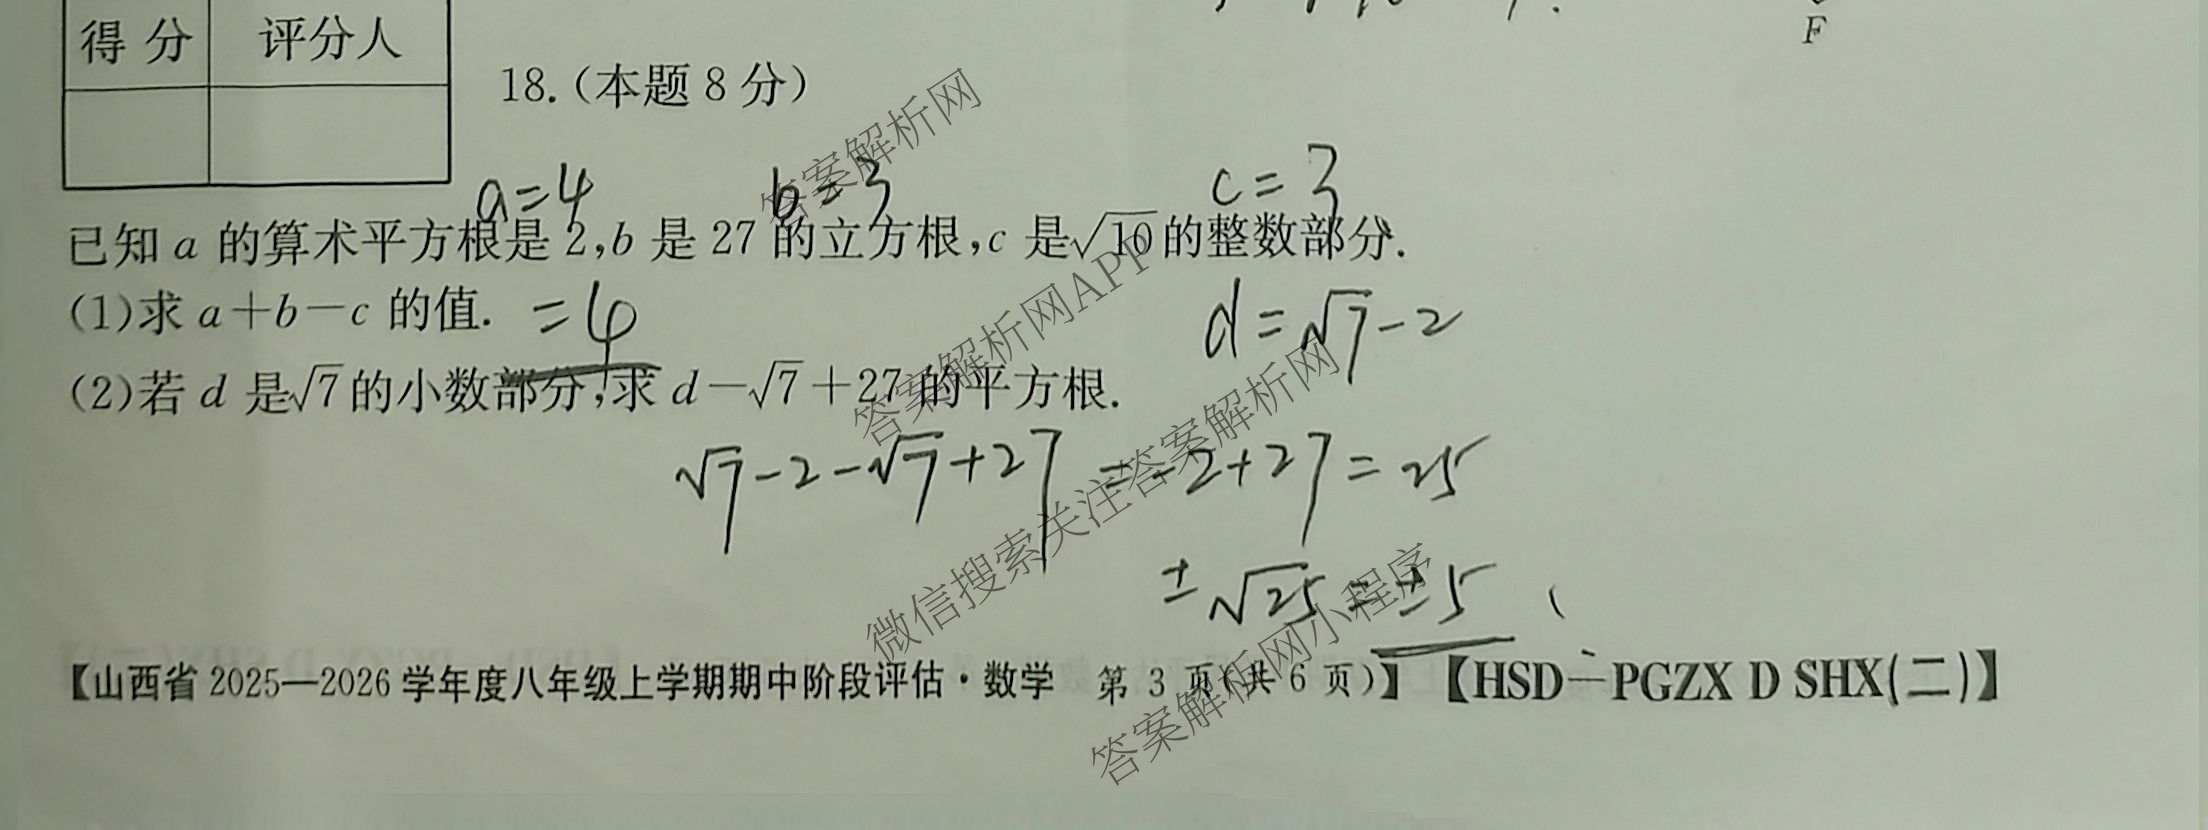 F
得分 评分人
18.(本题8分)
a=4 b=3 c=3
已知 a 的算术平方根是 2,b 是 27 的立方根,c 是√10的整数部分.
(1)求 a+b-c 的值. =4
d=√7-2
(2)若 d 是√7的小数部分,求 d-√7+27的平方根.
√7-2-√7+27=-2+27=25
±√25=±5
【山西省 2025—2026 学年度八年级上学期期中阶段评估·数学 第 3 页(共 6 页)】 【HSD-PGZX D SHX(二)】
答案解析网
答案解析网APP
微信搜索关注答案解析网
答案解析网小程序